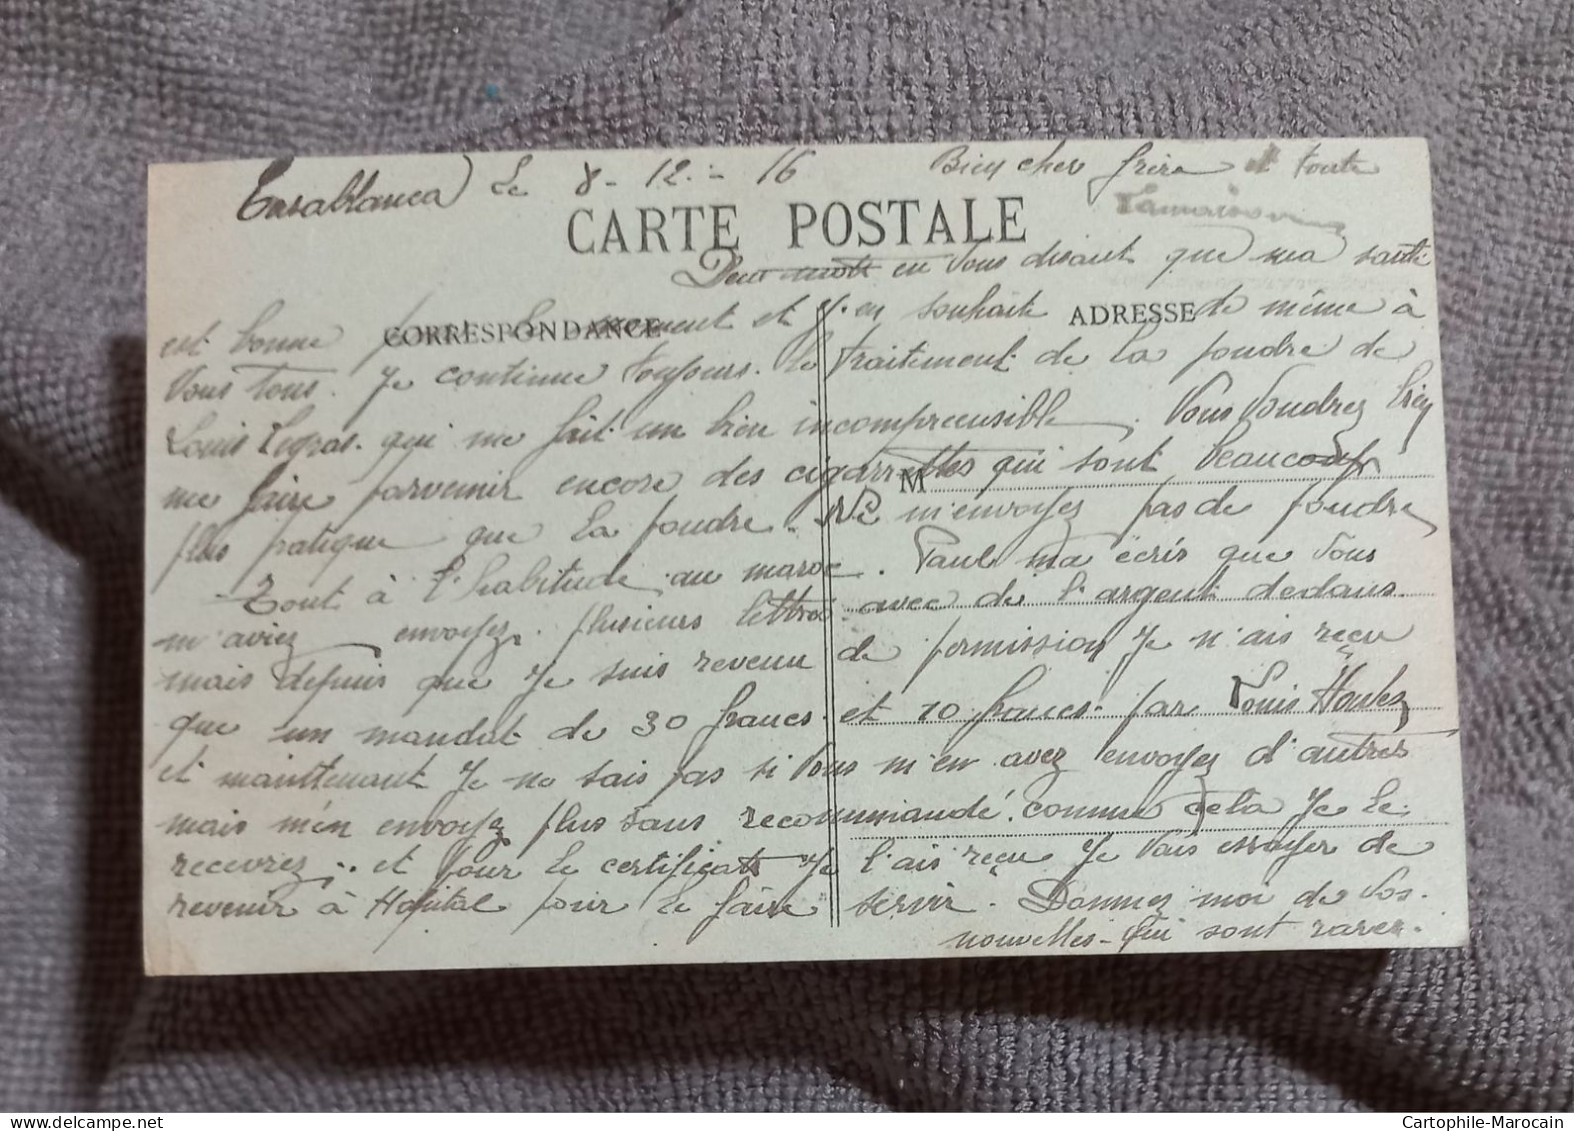 Casablanca) Le 8-12-16 Bien cher frère et toute
CARTE POSTALE Lamaison
Deux mots en vous disant que ma santé
CORRESPONDANCE ADRESSE
est bonne pour le moment et j'en souhaite de même à
vous tous. Je continue toujours. le traitement de la poudre de
Louis Legras. qui me fait un bien incompreensible. Vous voudrez bien
M
me faire parvenir encore des cigarrettes qui sont beaucoup
plus pratique que la poudre. Ne m'envoyez pas de poudre
Tout à l'habitude au maroc. Paul ma ècris que vous
m'aviez envoyez. plusieurs lettres avec de l'argent dedans.
mais depuis que Je suis revenu de permission Je n'ais reçu
que un mandat de 30 francs. et 10 francs. par Louis
et maintenant Je ne sais pas si vous m'en avez envoyez d'autres
mais m'en envoyez plus sans recommandé. comme cela Je le
recevrez.. et pour le certificat Je l'ais reçu Je vais essayer de
revenir à Hopital pour le faire servir. Donnez moi de vos.
nouvelles. qui sont rarez.
Cartophile-Marocain